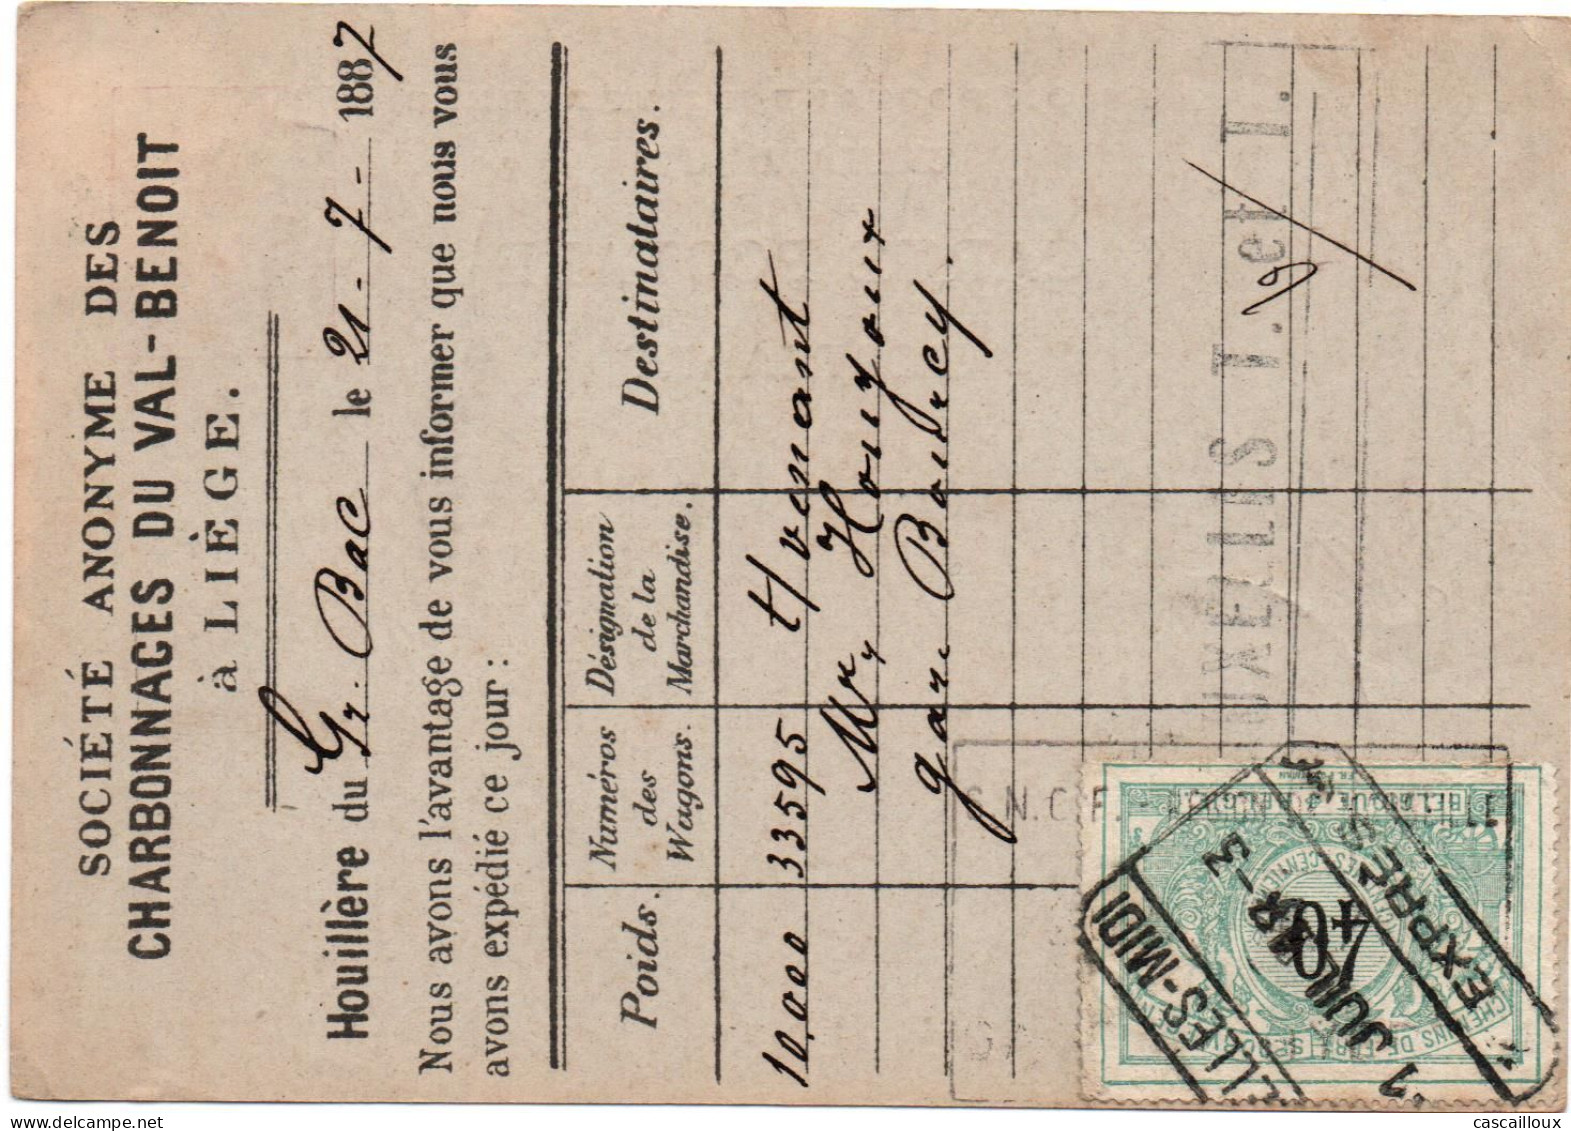 SOCIÉTÉ ANONYME DES
CHARBONNAGES DU VAL-BENOIT
à LIÈGE.
Houillère du Gr. Bac le 21-7-1887
Nous avons l'avantage de vous informer que nous vous
avons expédié ce jour :
Poids. Numéros des Wagons. Désignation de la Marchandise. Destinataires.
10,000 33595 t/venant
Mr, Houyoux
gare
BELGIQUE
CHEMINS DE FER
ELLES-MIDI
JUIL
EXPRES
S.N.C.F.
ET
T. et T.
cascailloux